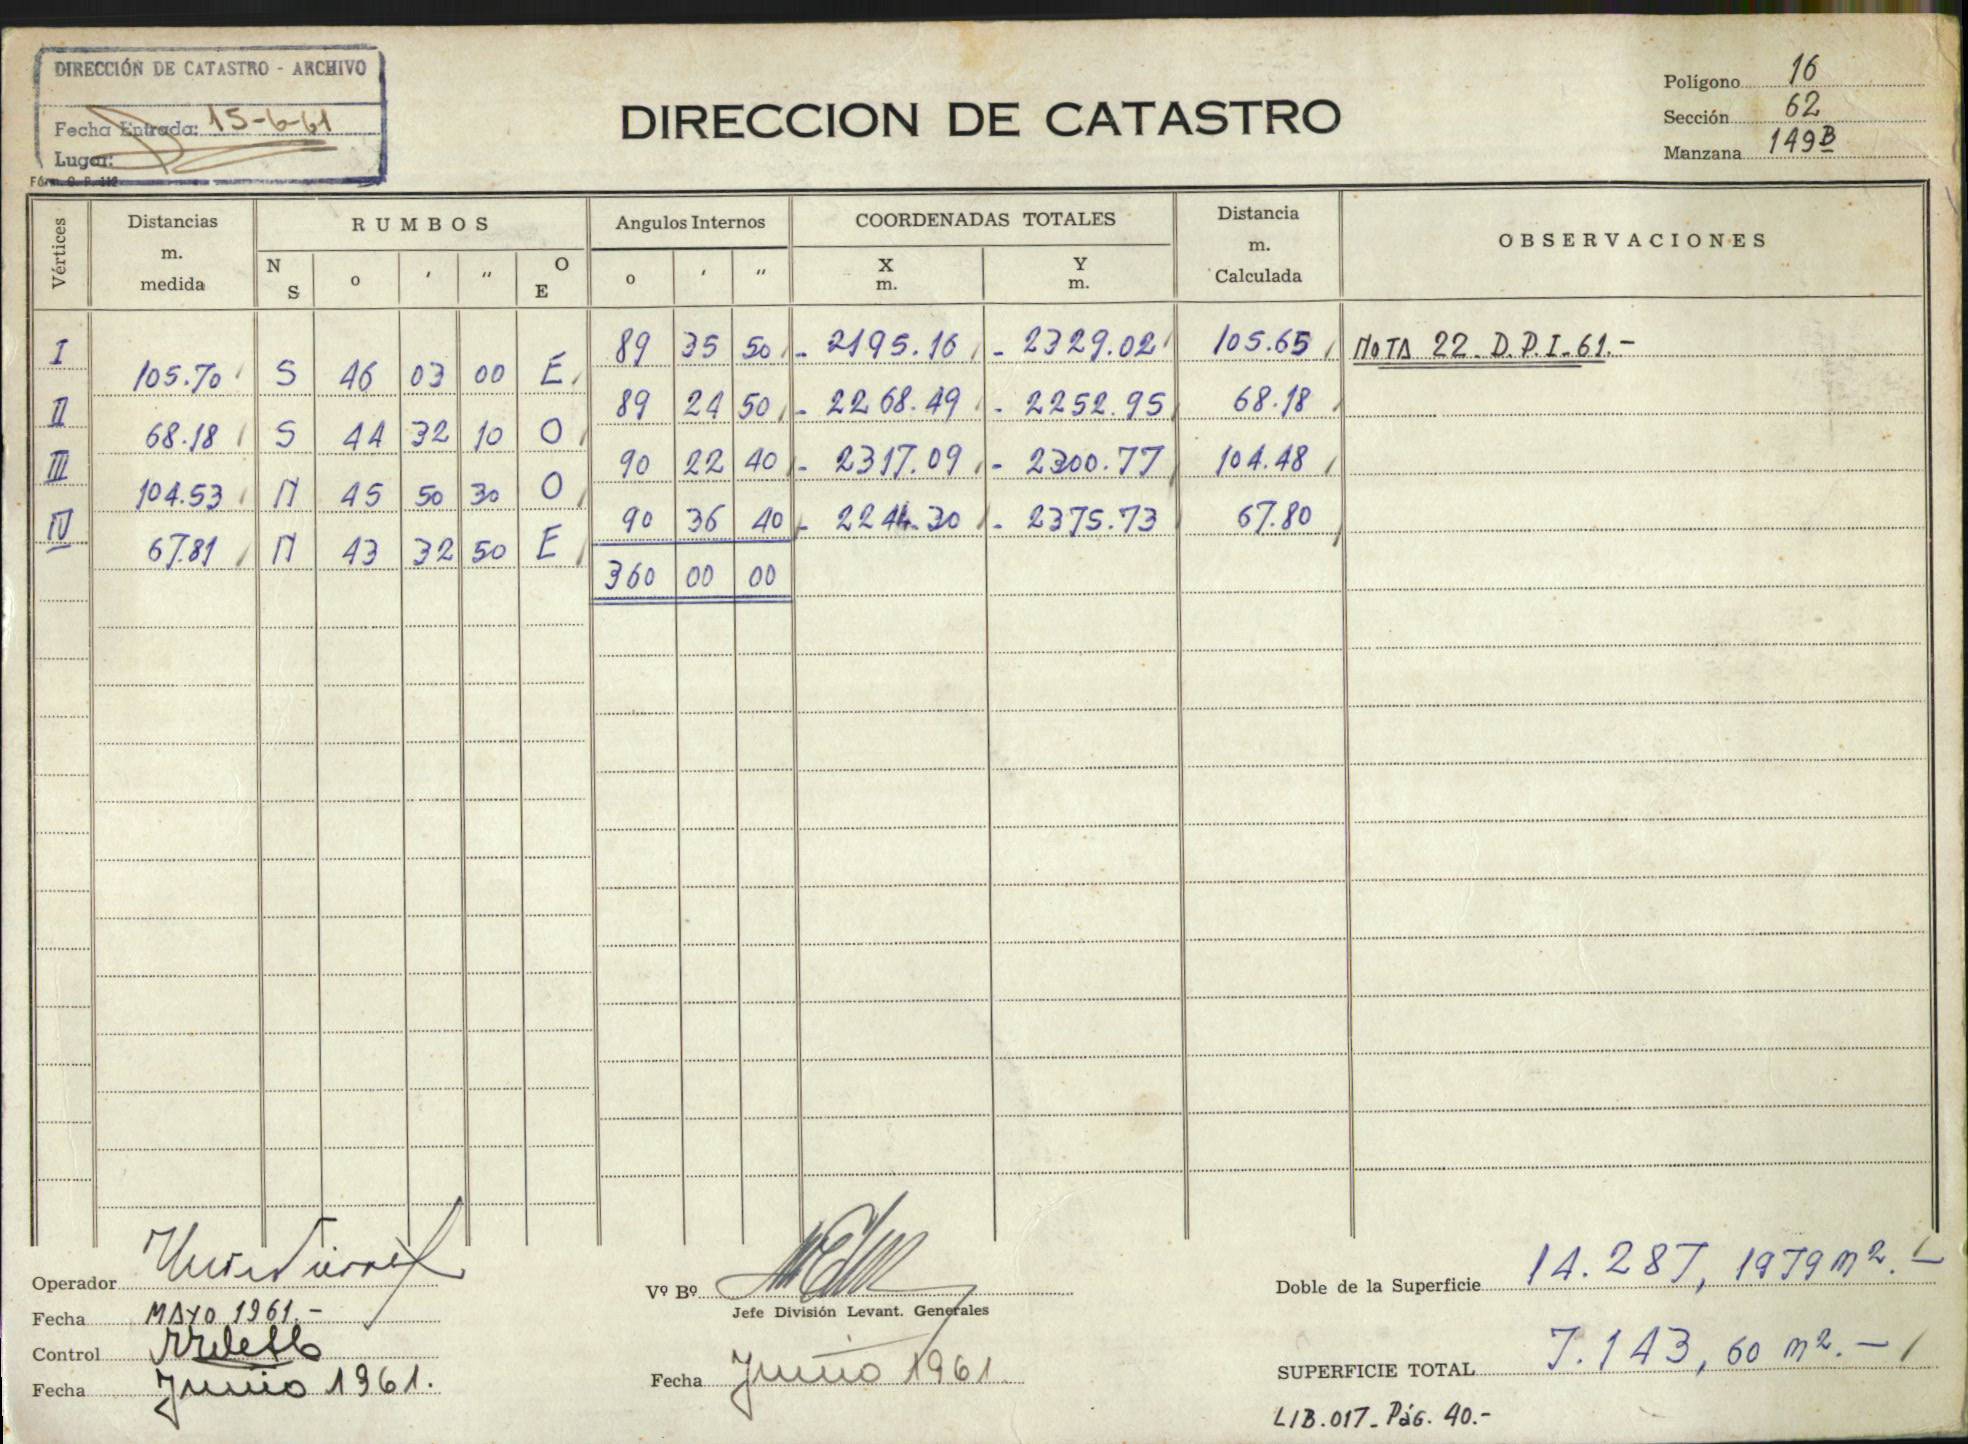 DIRECCIÓN DE CATASTRO - ARCHIVO
Fecha Entrada: 15-6-61
Lugar:
DIRECCION DE CATASTRO
Polígono 16
Sección 62
Manzana 149B
Vértices
Distancias m. medida
RUMBOS
N S o ′ ″ O E
Angulos Internos
o ′ ″
COORDENADAS TOTALES
X m. Y m.
Distancia m. Calculada
OBSERVACIONES
I 89 35 50 - 2195.16 - 2329.02 105.65 NOTA 22 D.P.I-61.-
105.70 S 46 03 00 E
II 89 24 50 - 2268.49 - 2252.95 68.18
68.18 S 44 32 10 O
III 90 22 40 - 2317.09 - 2300.77 104.48
104.53 N 45 50 30 O
IV 90 36 40 - 2244.30 - 2375.73 67.80
67.81 N 43 32 50 E
360 00 00
Operador
Fecha MAYO 1961.-
Control
Fecha Junio 1961.
Vº Bº
Jefe División Levant. Generales
Fecha Junio 1961.
Doble de la Superficie 14.287,1979 m2.-
SUPERFICIE TOTAL 7.143,60 m2.-
LIB.017- Pág. 40.-